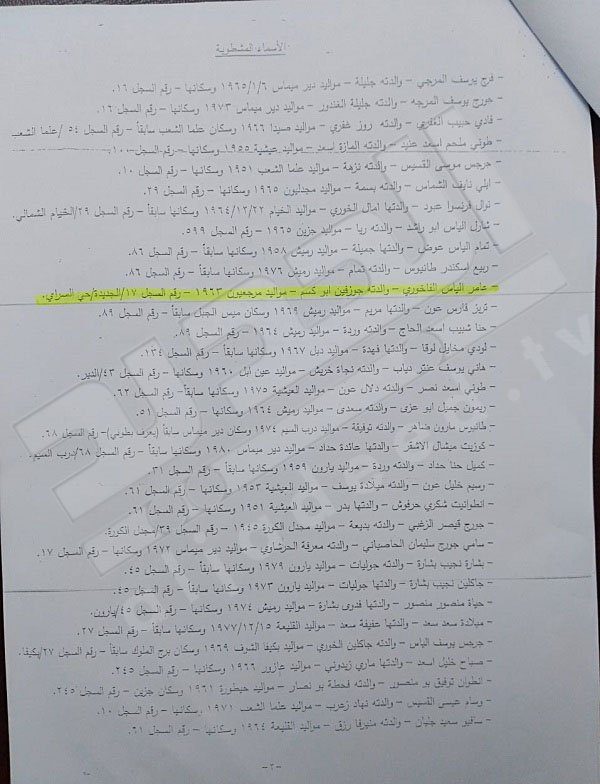 الأسماء المشطوبة
– فرج يوسف المرجي – والدته جليلة – مواليد دير ميماس ١٩٦٥/١/٦ وسكانها – رقم السجل ١٦.
– جورج يوسف المرجه – والدته جليلة الغندور – مواليد دير ميماس ١٩٧٣ وسكانها – رقم السجل ١٦.
– فادي حبيب الغفري – والدته روز غفري – مواليد صيدا ١٩٦٦ وسكان علما الشعب سابقاً – رقم السجل ٥٤ /علما الشعب
– طوني ملحم اسعد عنيد – والدته المازة اسعد – مواليد عيشية ١٩٥٥ وسكانها – رقم السجل ١٠٠
– جرجس موسى القسيس – والدته نزهة – مواليد علما الشعب ١٩٥١ وسكانها – رقم السجل ١٠.
– ايلي نايف الشماس – والدته بسمة – مواليد مجدليون ١٩٦٥ وسكانها – رقم السجل ٢٩.
– نوال فرنسوا عبود – والدتها امال الخوري – مواليد الخيام ١٩٦٤/١٢/٢٢ وسكانها سابقاً – رقم السجل ٢٩/الخيام الشمالي.
– شارل الياس ابو راشد – والدته ريا – مواليد جزين ١٩٦٥ – رقم السجل ٥٩٩.
– تمام الياس عوض – والدتها جميلة – مواليد رميش ١٩٥٨ وسكانها سابقاً – رقم السجل ٨٦.
– ربيع اسكندر طانيوس – والدته تمام – مواليد رميش ١٩٧٦ وسكانها سابقاً – رقم السجل ٨٦.
– عامر الياس الفاخوري – والدته جوزفين ابو كسم – مواليد مرجعيون ١٩٦٣ – رقم السجل ١٧/الجديدة/حي السراي.
– تريز فارس عون – والدتها مريم – مواليد رميش ١٩٦٩ وسكان ميس الجبل سابقاً – رقم السجل ٨٩.
– حنا شبيب اسعد الحاج – والدته وردة – مواليد رميش ١٩٦٤ – رقم السجل ٨٩.
– لودي مخايل لوقا – والدتها فهدة – مواليد دبل ١٩٦٧ وسكانها سابقاً – رقم السجل ١٣٤.
– هاني يوسف عنتر دياب – والدته نجاة خريش – مواليد عين ابل ١٩٦٠ وسكانها – رقم السجل ٤٣/الدير.
– طوني اسعد نصر – والدته دلال عون – مواليد العيشية ١٩٧٥ وسكانها سابقاً – رقم السجل ٦٣.
– ريمون جميل ابو عزي – والدته سعدى – مواليد رميش ١٩٦٤ وسكانها – رقم السجل ٥١.
– طانيوس مارون ضاهر – والدته توفيقة – مواليد درب السيم ١٩٧٤ وسكان دير ميماس سابقاً (يعرف بطوني) – رقم السجل ٦٨.
– كوزيت ميشال الاشقر – والدتها عائدة حداد – مواليد دير ميماس ١٩٨٠ وسكانها سابقاً – رقم السجل ٦٨/درب السيم
– كميل حنا حداد – والدته وردة – مواليد يارون ١٩٥٩ وسكانها سابقاً – رقم السجل ٣١.
– وسيم خليل عون – والدته ميلادة يوسف – مواليد العيشية ١٩٥٣ وسكانها – رقم السجل ٦١.
– انطوانيت شكري حرفوش – والدتها بدر – مواليد العيشية ١٩٥١ وسكانها – رقم السجل ٦١.
– جورج قيصر الزغبي – والدته بديعة – مواليد مجدل الكورة ١٩٤٥ – رقم السجل ٣٩/مجدل الكورة.
– سامي جورج سليمان الحاصباني – والدته معرفة الحرشاوي – مواليد دير ميماس ١٩٧٢ وسكانها – رقم السجل ١٧.
– بشارة نجيب بشارة – والدته جوليات – مواليد يارون ١٩٧٩ وسكانها سابقاً – رقم السجل ٤٥.
– جاكلين نجيب بشارة – والدتها جوليات – مواليد يارون ١٩٧٣ وسكانها سابقاً – رقم السجل ٤٥.
– حياة منصور منصور – والدتها فدوى بشارة – مواليد رميش ١٩٧٤ وسكانها – رقم السجل ٤٥/يارون.
– ميلادة سعد سعد – والدتها حفيفة سعد – مواليد القليعة ١٩٧٧/١٢/١٥ وسكانها سابقاً – رقم السجل ٢٧.
– جرجس يوسف الياس – والدته جاكلين الخوري – مواليد بكيفا الشوف ١٩٦٩ وسكان برج الملوك سابقاً – رقم السجل ٢٧/بكيفا.
– صباح خليل اسعد – والدتها ماري زيدوني – مواليد عازور ١٩٦٦ وسكانها – رقم السجل ٢٤٥.
– انطوان توفيق بو منصور – والدته فحطة بو نصار – مواليد حيطورة ١٩٦١ وسكان جزين – رقم السجل ٢٤٥.
– وسام عيسى القسيس – والدته نهاد زعرب – مواليد علما الشعب ١٩٧١ وسكانها – رقم السجل ١٠.
– سافيو سعيد جلبان – والدته منيرفا رزق – مواليد القليعة ١٩٦٤ وسكانها – رقم السجل ٦١.
–٢–